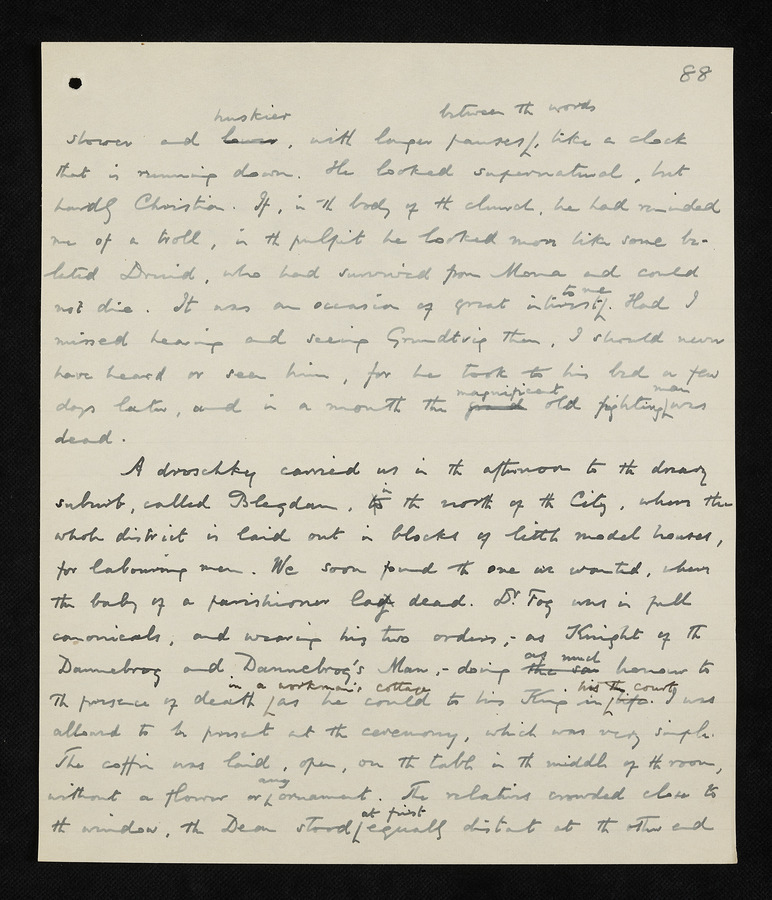 88
huskier between th words
slower and lower, with longer pauses, like a clock
that is running down. He looked supernatural, but
hardly Christian. If, in th body of th church, he had reminded
me of a troll, in th pulpit he looked more like some be-
lated Druid, who had survived from Mona and could
not die. It was an occasion of great interest to me. Had I
missed hearing and seeing Grundtvig then, I should never
have heard or seen him, for he took to his bed a few
magnificent man
days later, and in a month the grand old fighting was
dead.
A droschky carried us in th afternoon to th dreary
suburb, called Blegdam, in th north of th City, where the
whole district is laid out in blocks of little model houses,
for labouring men. We soon found th one we wanted, where
th baby of a parishioner lay dead. Dr. Fog was in full
canonicals, and wearing his two orders, - as Knight of Th
as much
Dannebrog and Dannebrog's Man, - doing the sa honour to
in a workman's cottage his th court
Th presence of death as he could to his King in life. I was
allowed to be present at th ceremony, which was very simple.
The coffin was laid, open, on th table in th middle of th room,
any
without a flower or ornament. The relatives crowded close to
at first
th window, th Dean stood equally distant at th other end